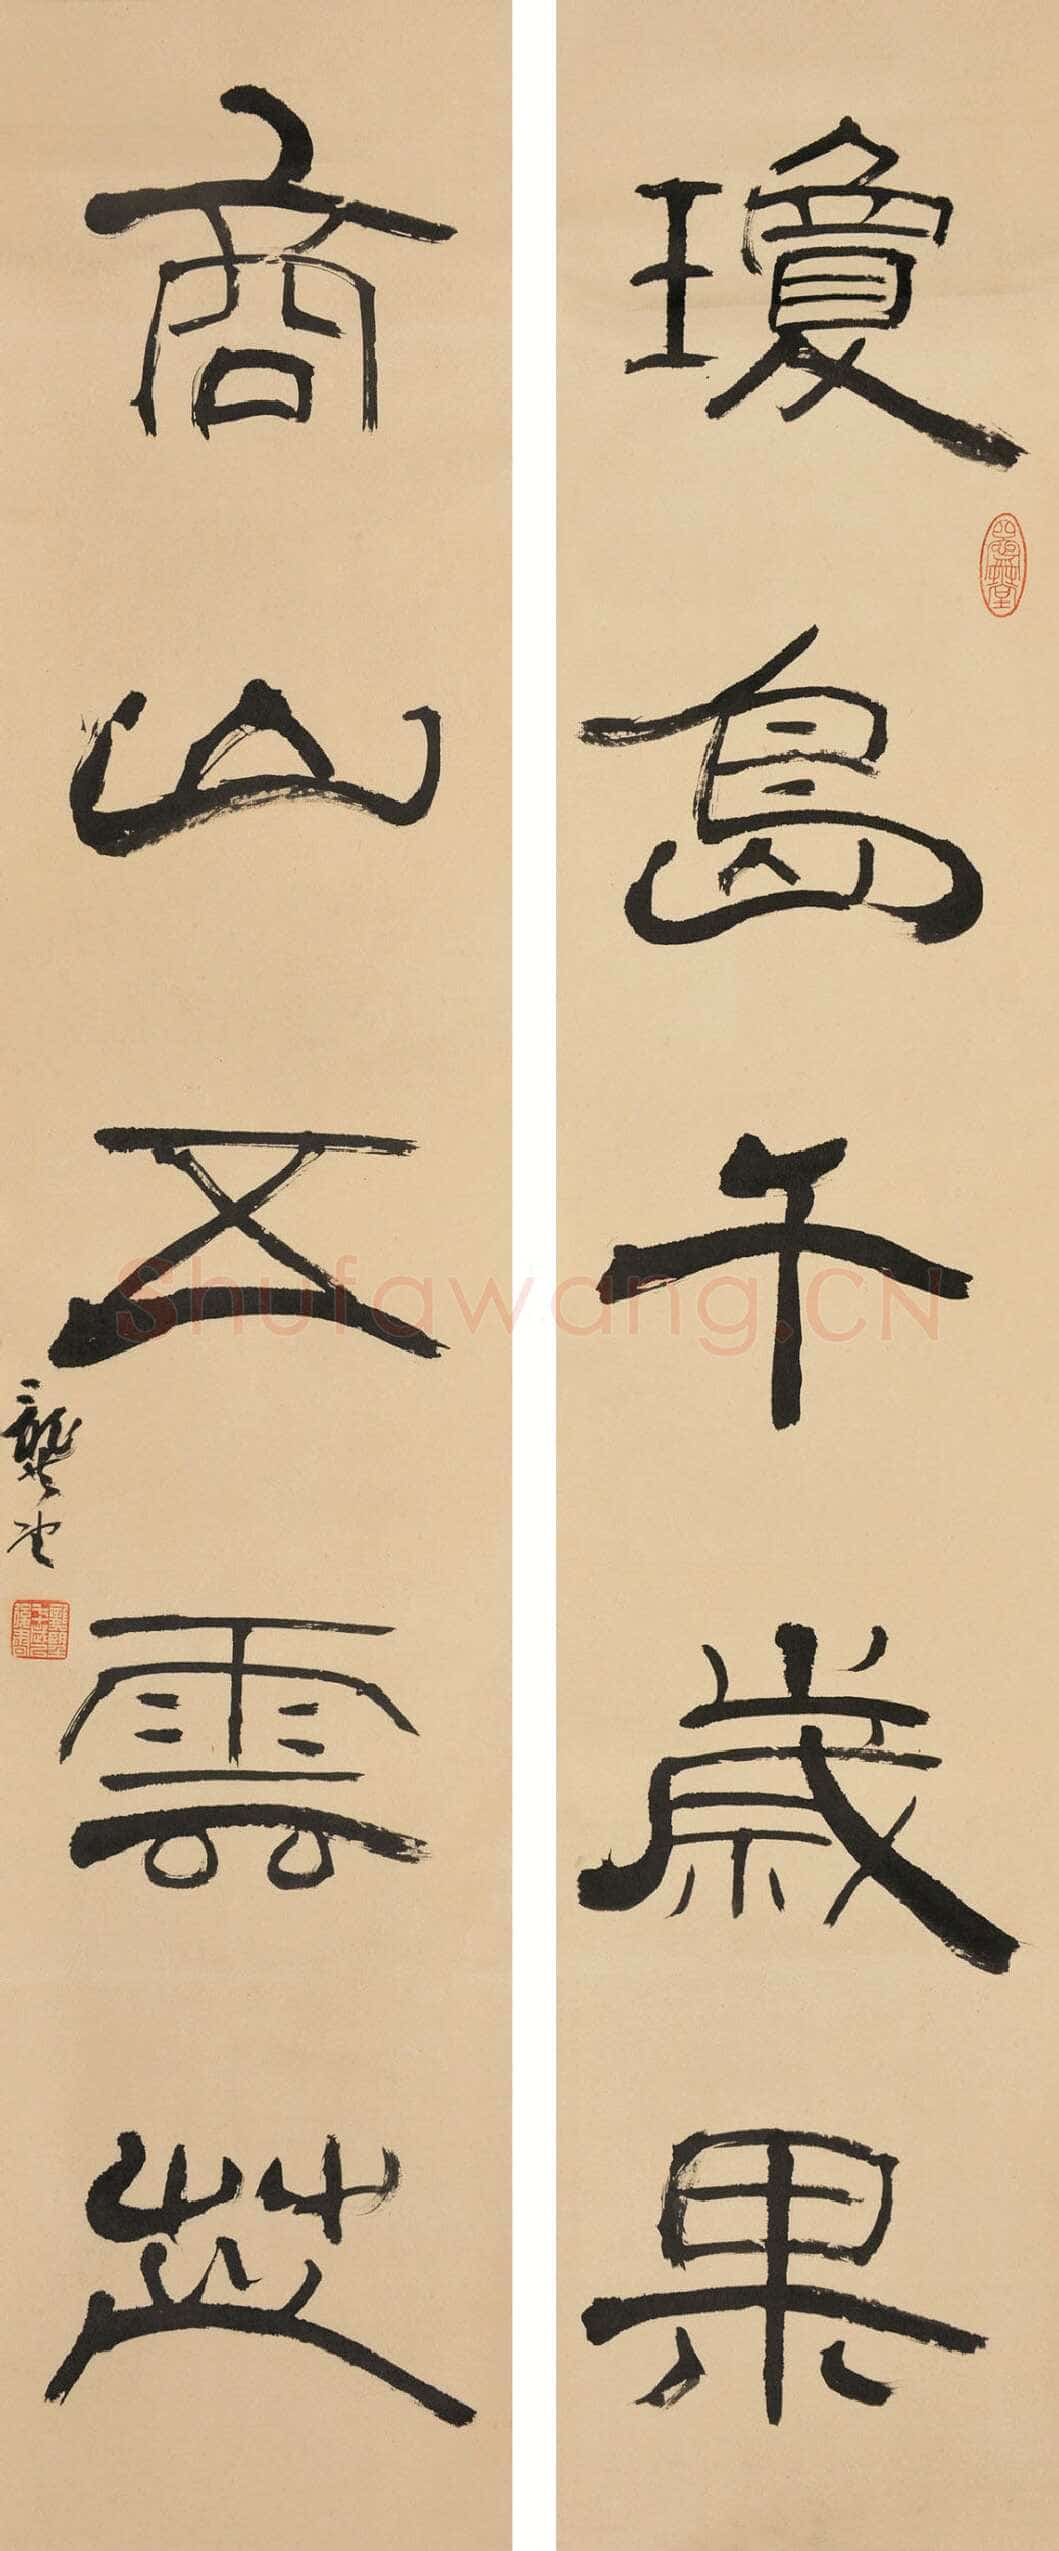 瓊島千歲果
商山五雲芝
龔望
Shufawang.CN